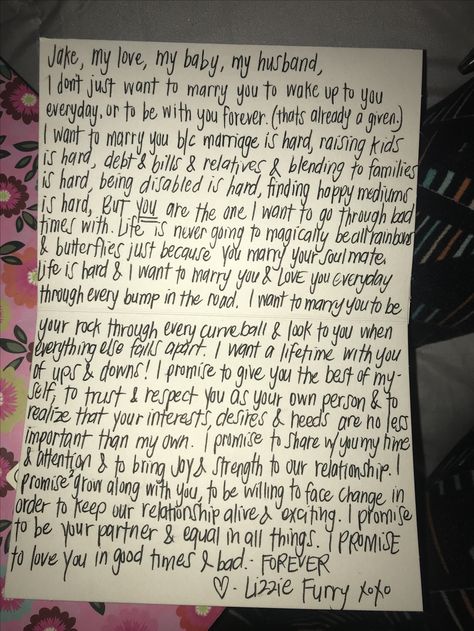 Jake, my love, my baby, my husband,
I don't just want to marry you to wake up to you
everyday, or to be with you forever. (thats already a given.)
I want to marry you b/c marriage is hard, raising kids
is hard, debt & bills & relatives & blending to families
is hard, being disabled is hard, finding happy mediums
is hard, But you are the one I want to go through bad
times with. Life is never going to magically be all rainbows
& butterflies just because you marry your soulmate,
life is hard & I want to marry you & LOVE you everyday
through every bump in the road. I want to marry you to be
your rock through every curveball & look to you when
everything else falls apart. I want a lifetime with you
of ups & downs! I promise to give you the best of my-
self, to trust & respect you as your own person & to
realize that your interests, desires & needs are no less
important than my own. I promise to share w/you my time
& attention & to bring Joy & strength to our relationship. I
promise grow along with you, to be willing to face change in
order to keep our relationship alive & exciting. I promise
to be your partner & equal in all things. I PROMISE
to love you in good times & bad. - FOREVER
♡ - Lizzie Furry xoxo